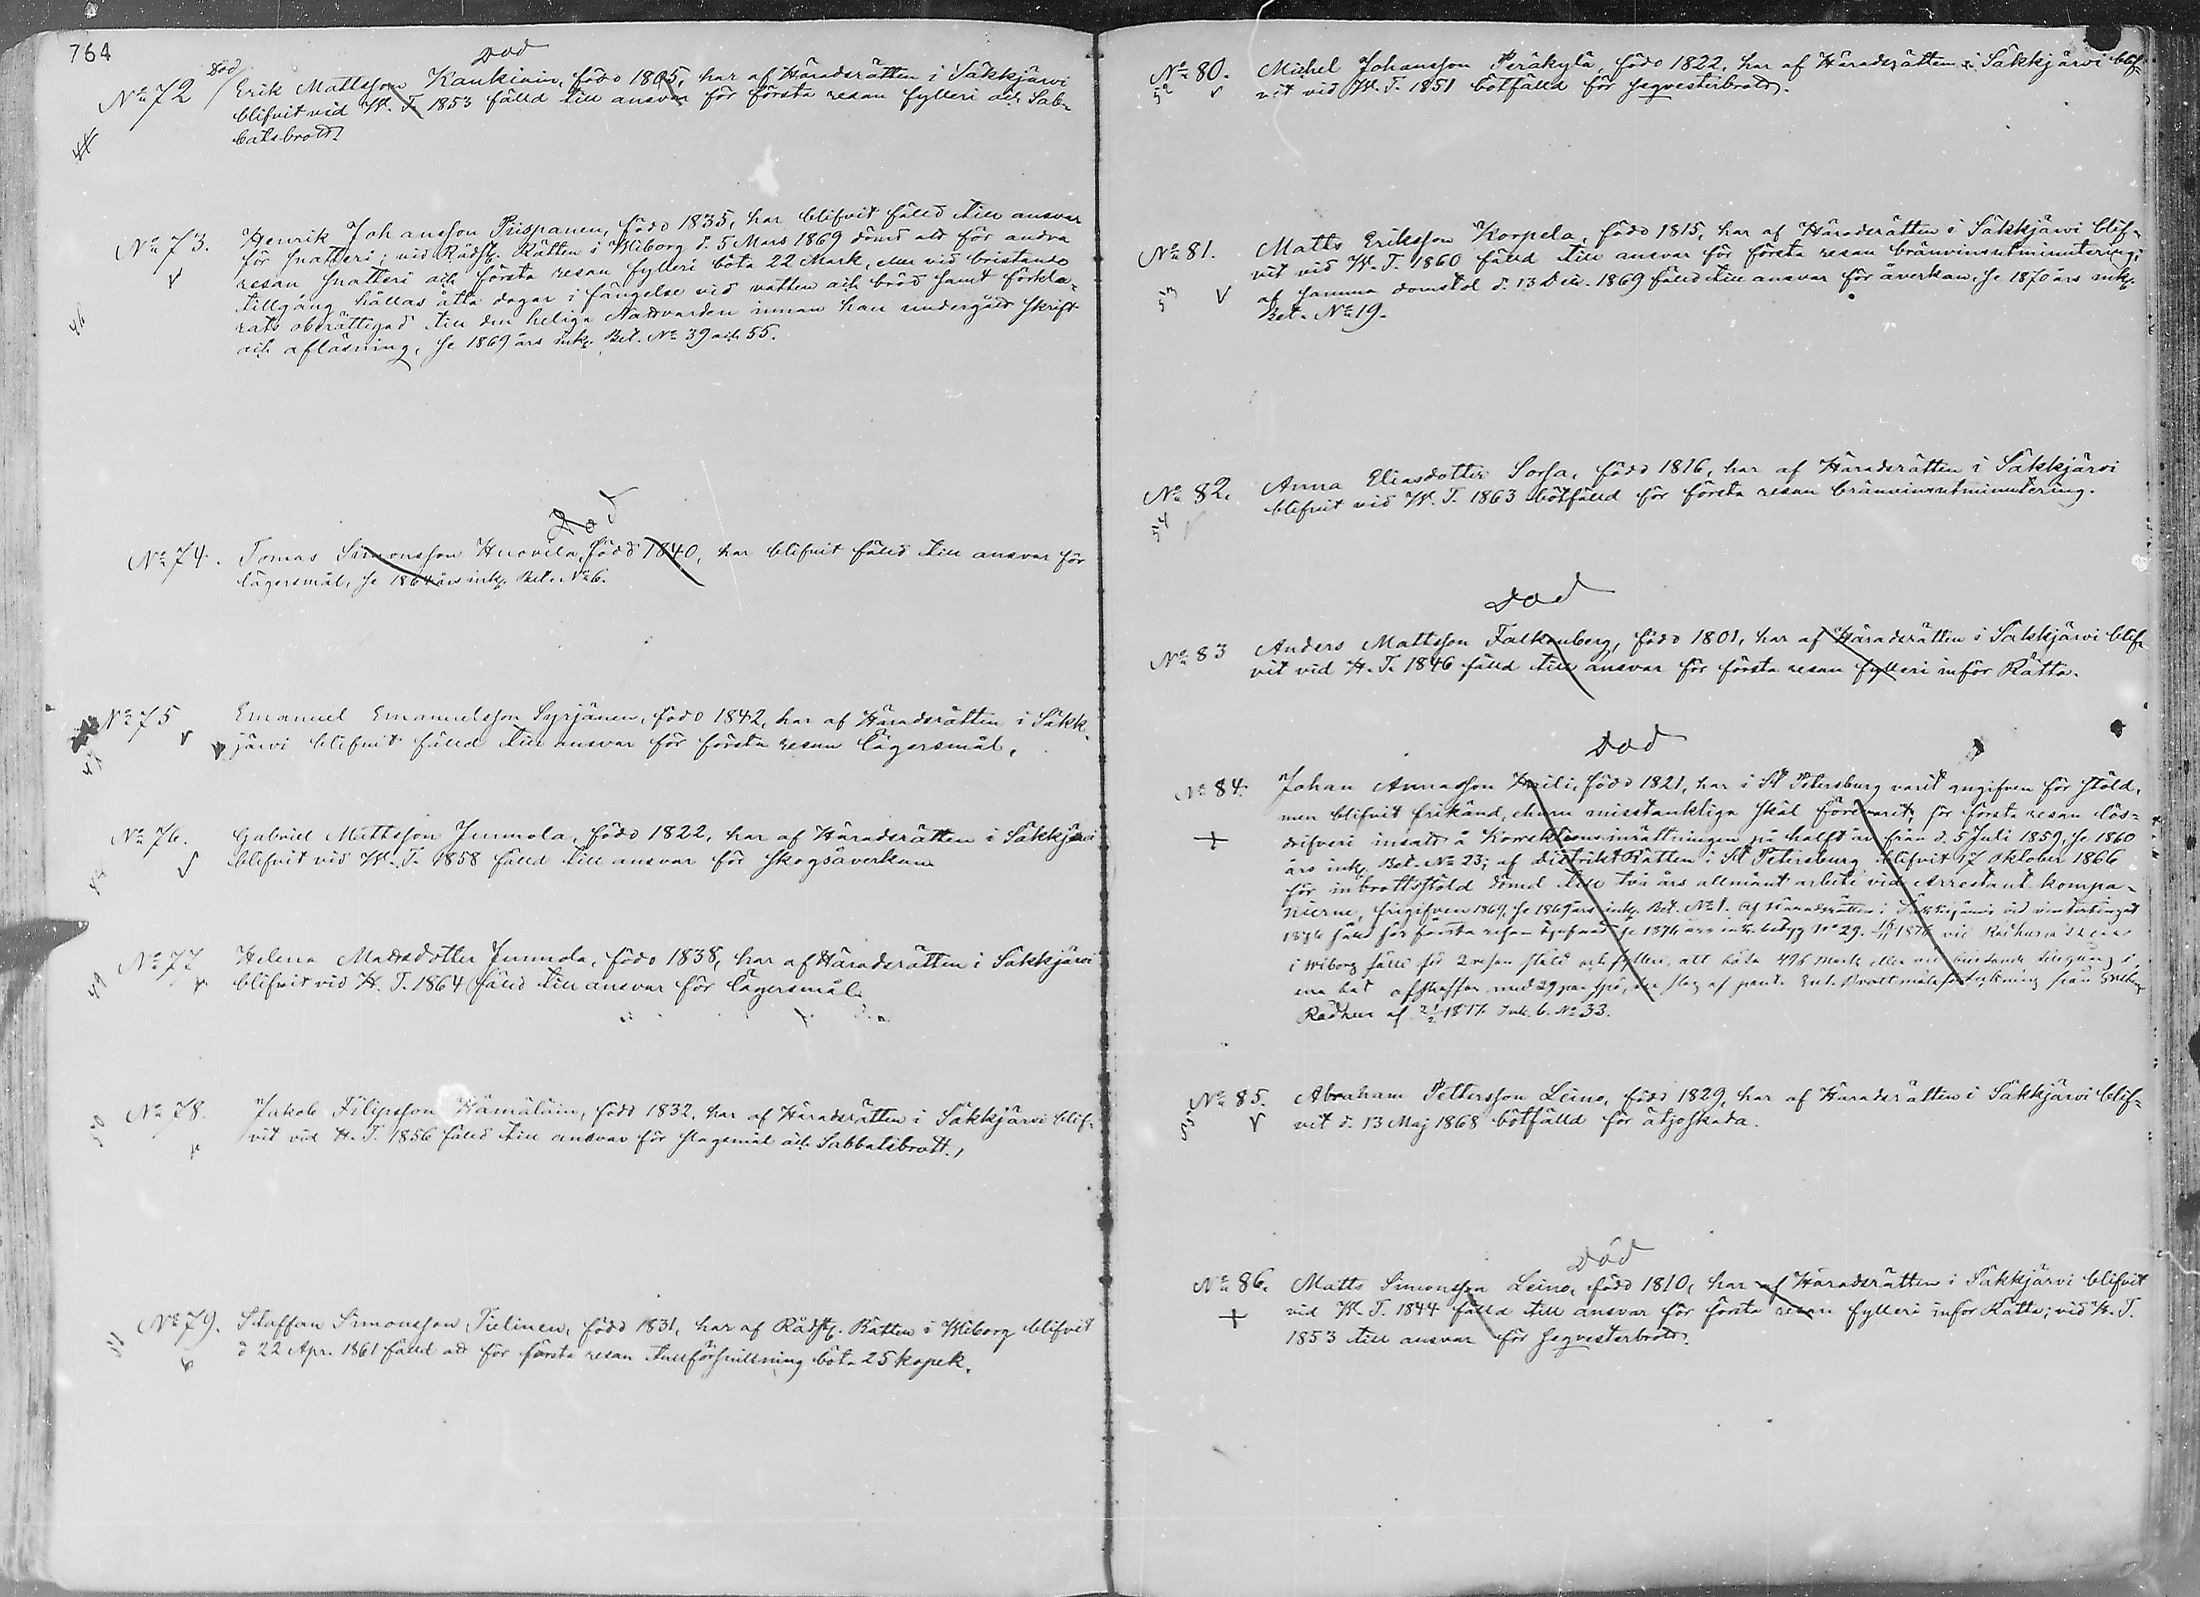 764
Död
Död
No 72 Erik Mattsson Kaukiain, född 1805, har af Häradsrätten i Säkkjärvi
blifvit vid W. T. 1853 fälld till ansvar för första resan fylleri och Sab-
batsbrott.
No 73. Henrik Johansson Piispanen, född 1835, har blifvit fälld till ansvar
46
för snatteri; vid Rådst. Rätten i Wiborg d. 5 Mars 1869 dömd att för andra
resan snatteri och första resan fylleri böta 22 Mark, eller vid bristande
tillgång hållas åtta dagar i fängelse vid vatten och bröd samt förkla-
rats oberättigad till den heliga Nattvarden innan han undergått skrift
och aflösning, se 1869 års ink. Bet. No 39 och 55.
Död
No 74. Tomas Simonsson Huovila, född 1840, har blifvit fälld till ansvar för
lägersmål, se 1864 års ink. Bet. No 6.
No 75 Emanuel Emanuelsson Syrjänen, född 1842, har af Häradsrätten i Säkk-
47
järvi blifvit fälld till ansvar för första resan lägersmål.
No 76. Gabriel Mattsson Junnola, född 1822, har af Häradsrätten i Säkkjärvi
blifvit vid W. T. 1858 fälld till ansvar för skogsåverkan
No 77 Helena Mattsdotter Junnola, född 1838, har af Häradsrätten i Säkkjärvi
49
blifvit vid H. T. 1864 fälld till ansvar för lägersmål.
No 78. Jakob Filipsson Hämäläin, född 1832, har af Häradsrätten i Säkkjärvi blif-
50
vit vid H. T. 1856 fälld till ansvar för slagsmål och Sabbatsbrott.
No 79. Staffan Simonsson Tielinen, född 1831, har af Rådst. Rätten i Wiborg blifvit
51
d 22 Apr. 1861 fälld att för första resan tullförsnillning böta 25 kopek.
No 80. Michel Johansson Peräkylä, född 1822, har af Häradsrätten i Säkkjärvi blif-
52
vit vid W. T. 1851 bötfälld för seqvesterbrott.
No 81. Matts Eriksson Korpela, född 1815, har af Häradsrätten i Säkkjärvi blif-
vit vid W. T. 1860 fälld till ansvar för första resan bränvinsutminutering;
53
af samma domstol d. 13 Dec. 1869 fälld till ansvar för åverkan. Se 1870 års ink.
Bet. No 19.
No 82. Anna Eliasdotter Sorsa, född 1816, har af Häradsrätten i Säkkjärvi
54
blifvit vid W. T. 1863 bötfälld för första resan bränvinsutminutering.
Död
No 83 Anders Mattsson Falkenberg, född 1801, har af Häradsrätten i Säkkjärvi blif-
vit vid H. T. 1846 fälld till ansvar för första resan fylleri inför Rätta.
Död
No 84. Johan Annasson född 1821, har i St Petersburg varit angifven för stöld,
men blifvit frikänd, ehuru misstänkliga skäl förevarit, för första resan lös-
drifveri insatt å Korrektionsinrättningen på halft år från d. 5 Juli 1859, Se 1860
års ink. Bet. No 23; af Distrikt Rätten i St Petersburg blifvit 17 Oktober 1866
för inbrottsstöld dömd till två års allmänt arbete vid Arrestant kompa-
nierne, frigifven 1869, Se 1869 års ink. Bet. No 1. Af Häradsrätten i Säkkjärvi vid vintertinget
1876 fälld för första resan Se 1876 års ink. No 29.
i Wiborg fälld för 2 resan stöld och fylleri, att böta mark eller vid bristande tillgång i
ena bot afstraffas med 29 par spö, tre slag af paret. Enl. från
Rådhus af 1877. Ink. b. No 33.
No 85. Abraham Pettersson Leino, född 1829, har af Häradsrätten i Säkkjärvi blif-
55
vit d. 13 Maj 1868 bötfälld för åtjoskada.
Död
No 86. Matts Simonsson Leino, född 1810, har af Häradsrätten i Säkkjärvi blifvit
vid W. T. 1844 fälld till ansvar för första resan fylleri inför Rätta; vid H. T.
1853 till ansvar för seqvesterbrott.